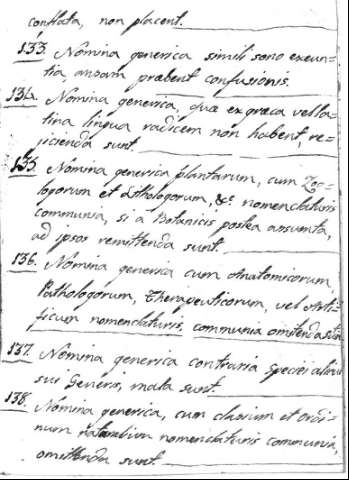 conflata, non placent.
133. Nomina generica simili sono exeun=
tia, ansam præbent confusionis.
134. Nomina generica, quæ ex græca vel la=
tina lingua radicem non habent, re=
jicienda sunt.
135. Nomina generica plantarum, cum Zoo=
logorum et Lithologorum, &c. nomenclaturis
communia, si a Botanicis postea assumta,
ad ipsos remittenda sunt.
136. Nomina generica cum Anatomicorum,
Pathologorum, Therapeuticorum, vel Arti=
ficum nomenclaturis, communia omitenda sunt
137. Nomina generica contraria speciei alicui
sui Generis, mala sunt.
138. Nomina generica, cum clasium et Ordi=
num naturalium nomenclaturis communia,
omittenda sunt.